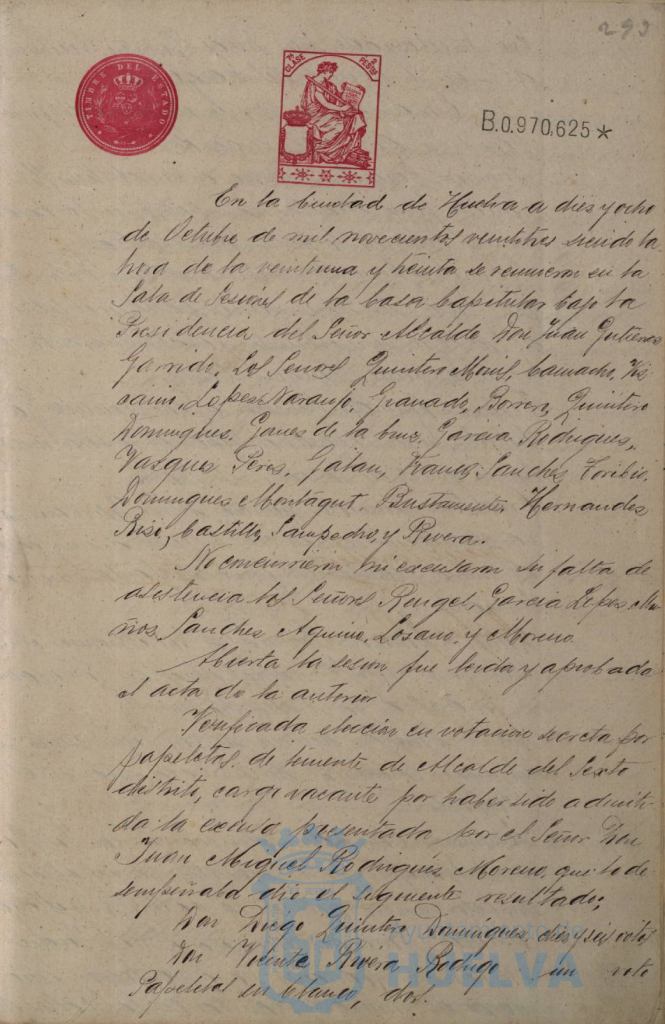 293
TIMBRE DEL ESTADO
7ª CLASE 2 PESTAS
B.0.970,625*
En la Ciudad de Huelva a dies y ocho
de Octubre de mil novecientos veintitres siendo la
hora de la veintiuna y treinta se reunieron en la
Sala de Sesiones de la Casa Capitular bajo la
Presidencia del Señor Alcalde Don Juan Gutierres
Garrido, Los Señores Quintero Camacho, Vis
caino, Lopes Naranjo, Granado, Borrero, Quintero
Domingues, Gomes de la Crus, Garcia Rodrigues,
Vasques Peres, Galan, Franco, Sanches Toribio,
Domingues Montagut, Bustamente, Hernandes
Castillo, Sampedro, y Rivera.
No concurrieron ni excusaron su falta de
asistencia los Señores Rengel, Garcia Lopes, Mu
ños, Sanches Aquino, Losano, y Moreno
Abierta la sesion fue leida y aprobada
el acta de la anterior
Verificada eleccion en votacion secreta por
papeletas de teniente de Alcalde del Sexto
distrito, cargo vacante por haber sido admiti-
da la excusa presentada por el Señor Don
Juan Miguel Rodrigues Moreno, que lo de
sempeñaba dio el siguiente resultado;
Don Diego Quintero Domingues, dies y seis votos
Don Vicente Rivera Rodrigo un voto
Papeletas en blanco, dos.
HUELVA